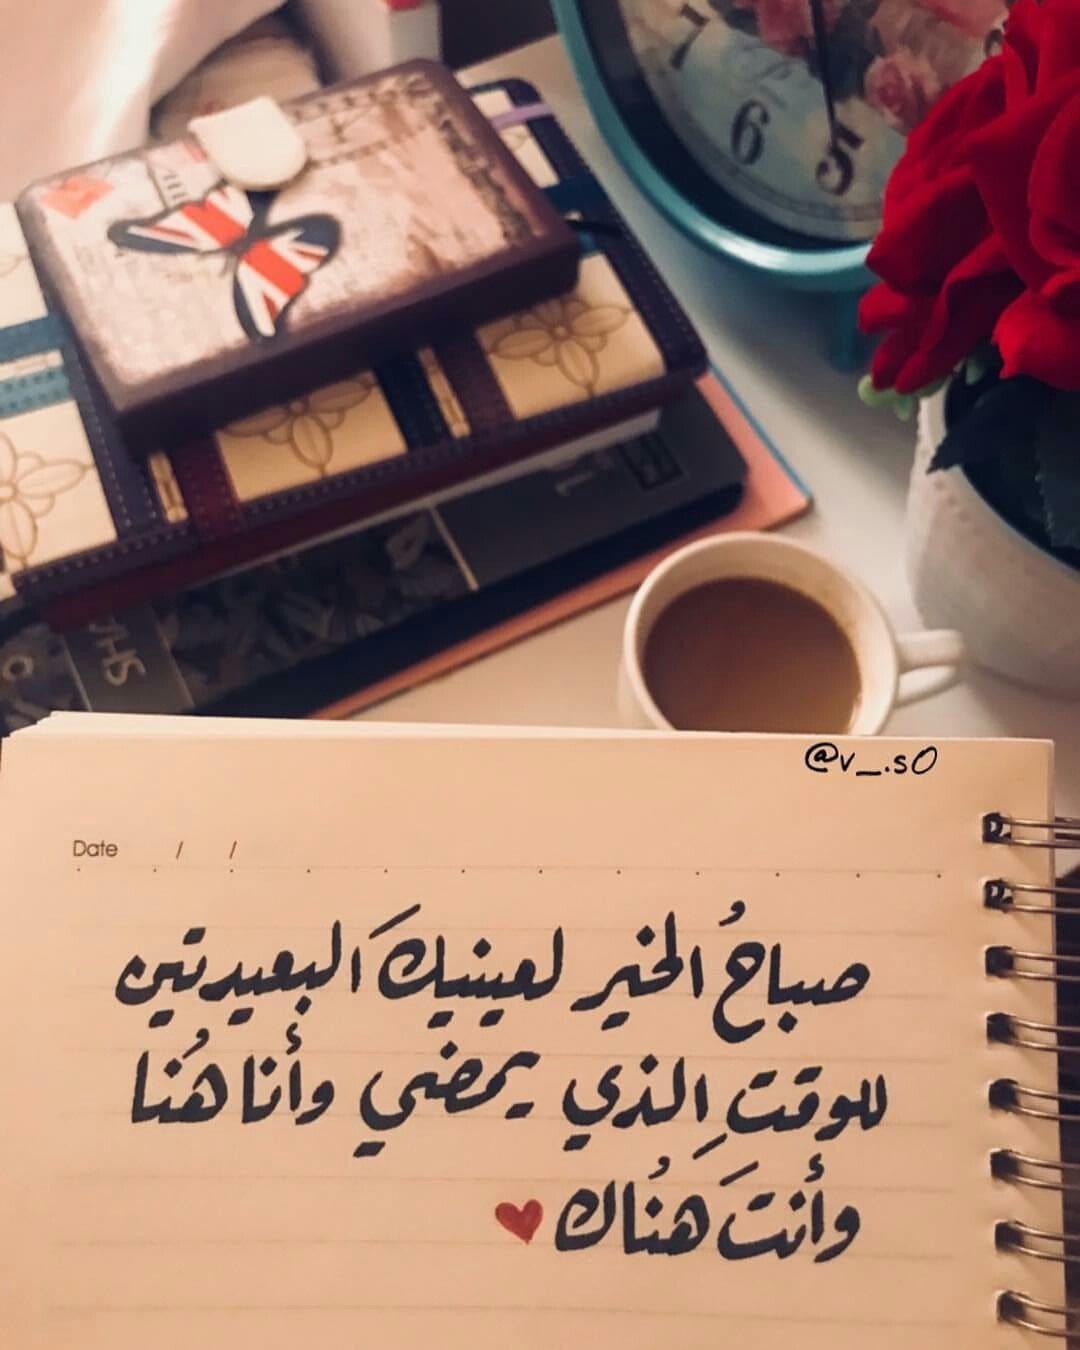 6
5
@v_.s0
Date / /
صباحُ الخير لعينيكَ البعيدتين
للوقتِ الذي يمضي وأنا هُنا
وأنتَ هُناك